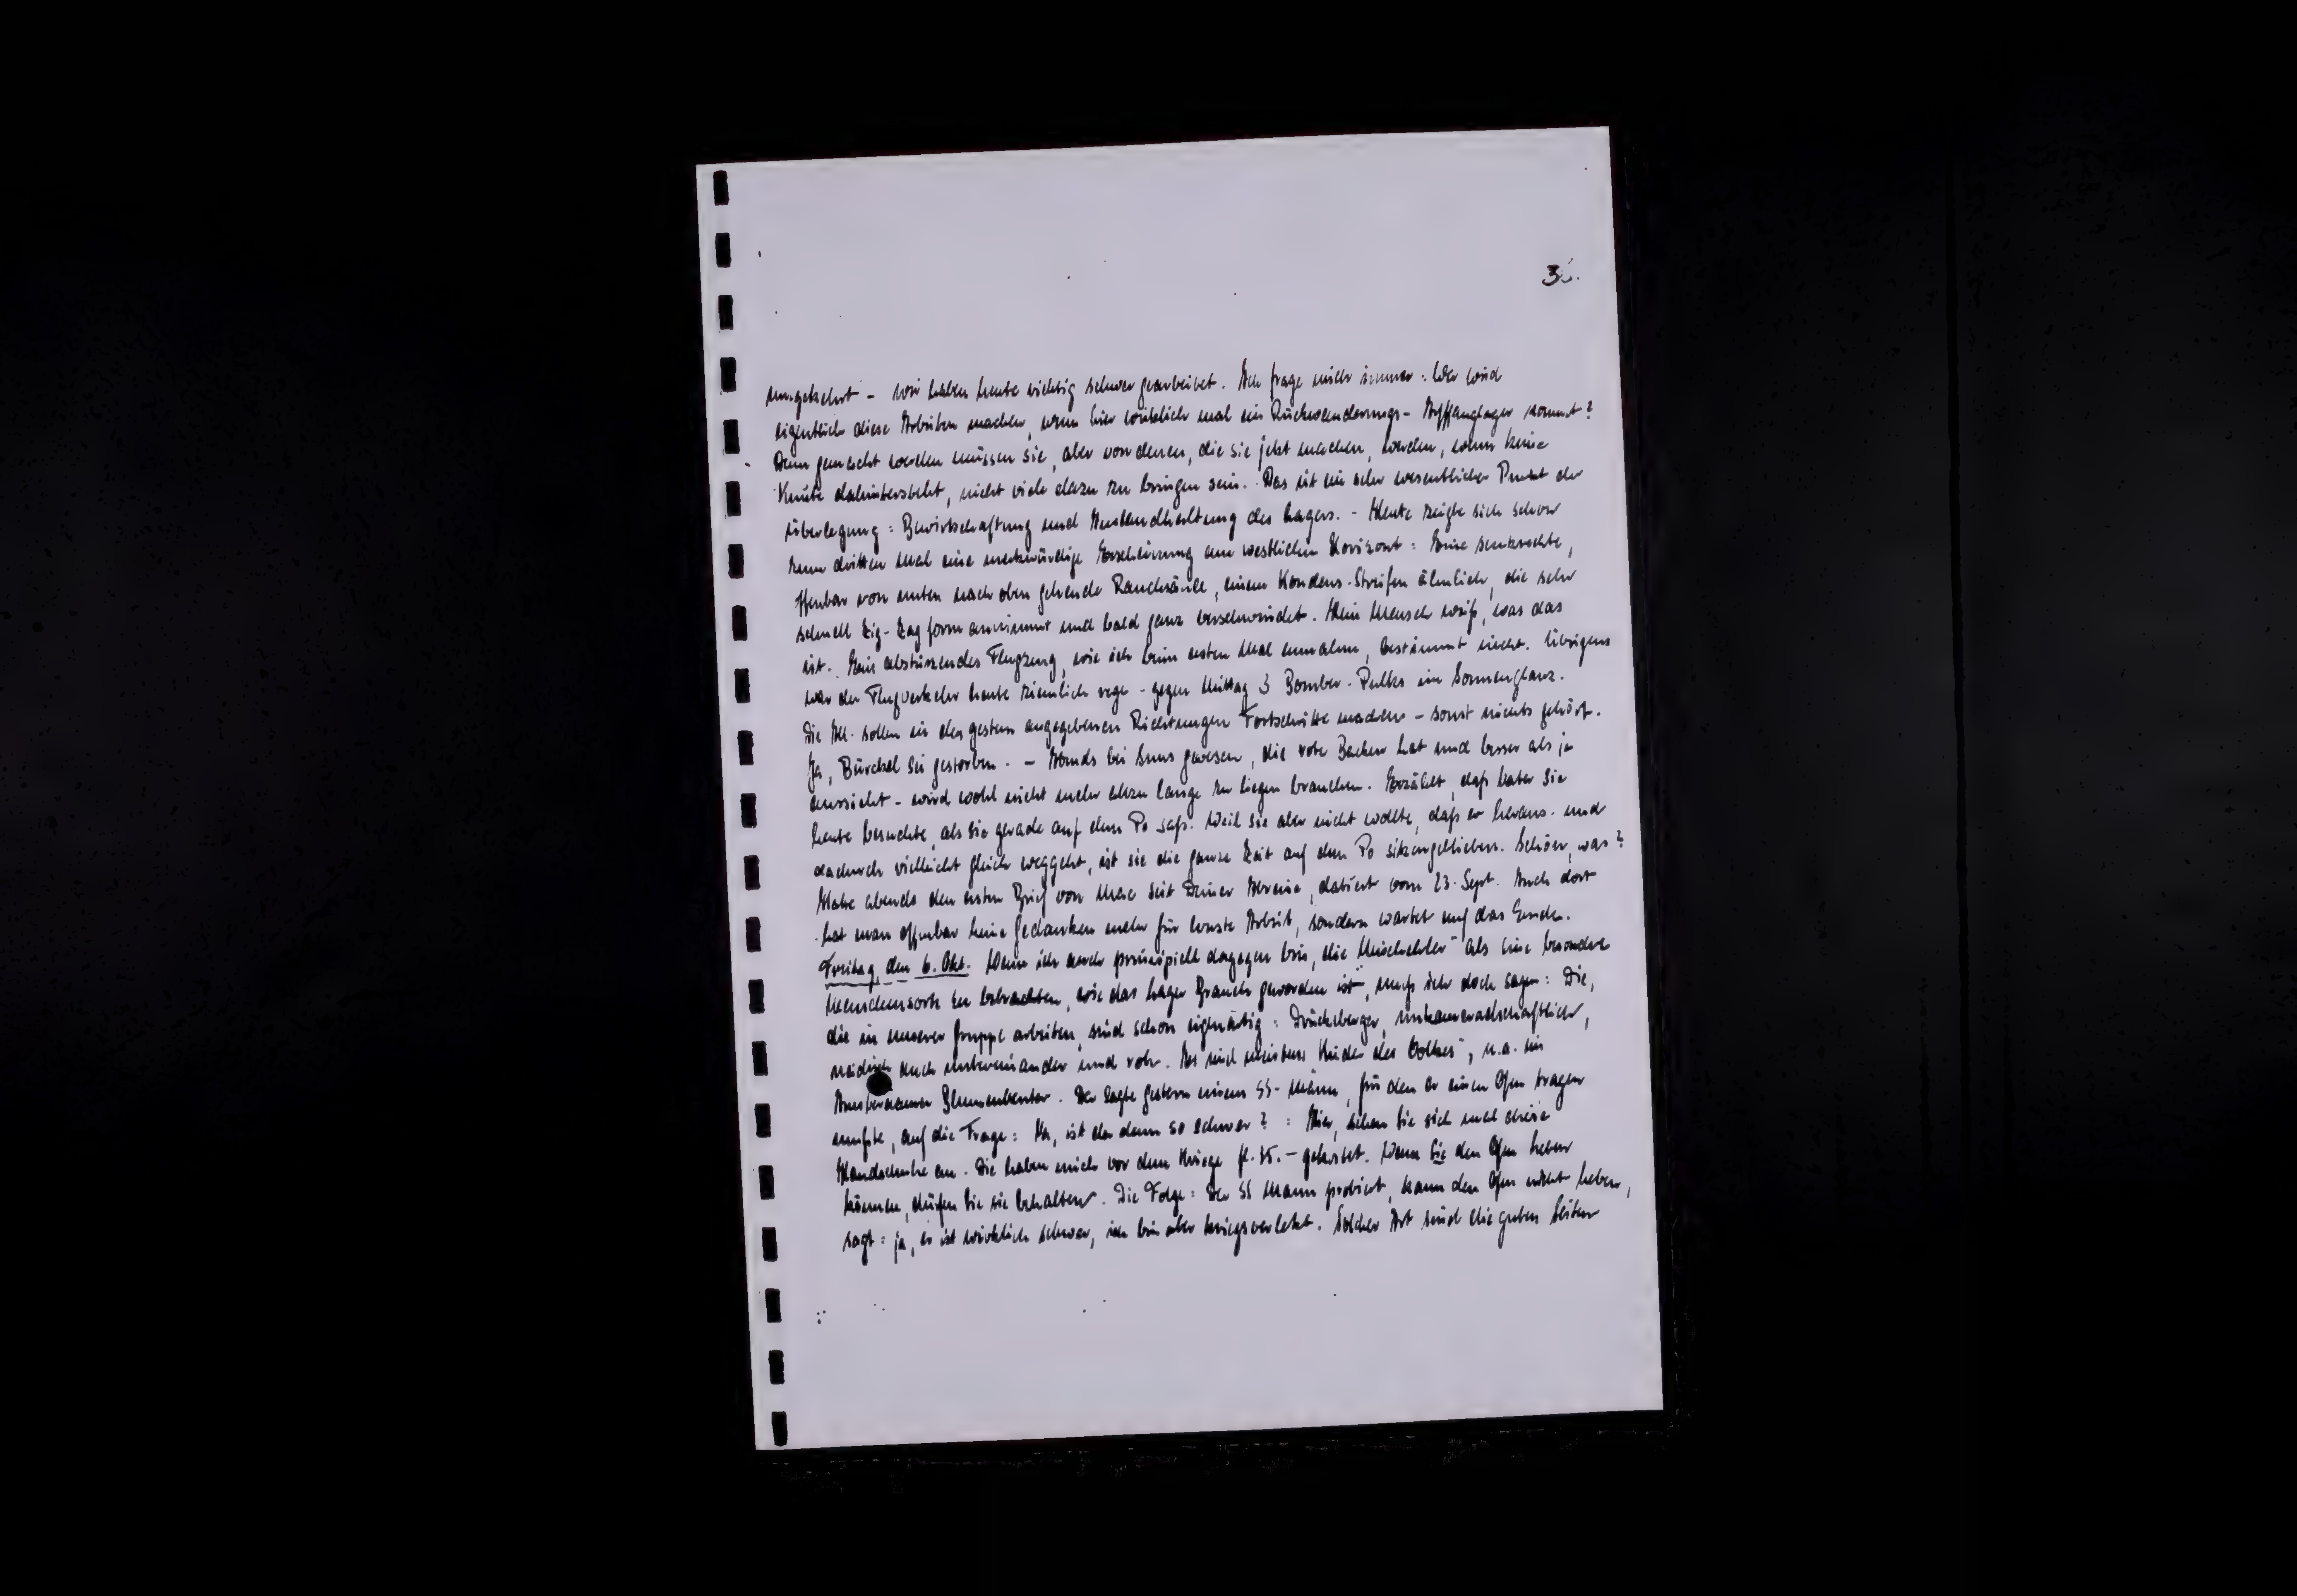 3
umgekehrt - wir haben heute richtig schwer gearbeitet. Ich frage mich immer: Wer wird
eigentlich diese Arbeiten machen, wenn hier wirklich mal ein Rückwanderungs-Auffanglager kommt?
Denn gemacht werden müssen sie, aber von denen, die sie jetzt machen, werden, wenn keine
Knute dahintersteht, nicht viele dazu zu bringen sein. Das ist ein sehr wesentlicher Punkt der
Überlegung: Bewirtschaftung und Instandhaltung des Lagers. - Heute zeigte sich schon
zum dritten Mal eine merkwürdige Erscheinung am westlichen Horizont: Eine senkrechte,
offenbar von unten nach oben gehende Rauchsäule, einem Kondens-Streifen ähnlich, die sehr
schnell Zig-Zag form annimmt und bald ganz verschwindet. Kein Mensch weiß, was das
ist. Ein abstürzendes Flugzeug, wie ich beim ersten Mal annahm, bestimmt nicht. Übrigens
war der Flugverkehr heute ziemlich rege - gegen Mittag 3 Bomber-Pulks im Sonnenglanz.
Die All. sollen in den gestern angegebenen Richtungen Fortschritte machen - sonst nichts gehört.
Ja, Bürckel sei gestorben. - Abends bei gewesen, die rote Backen hat und besser als je
aussieht - wird wohl nicht mehr allzu lange zu liegen brauchen. Erzählt, daß sie
heute besuchte, als sie gerade auf dem Po saß. Weil sie aber nicht wollte, daß er heraus- und
dadurch vielleicht gleich weggeht, ist sie die ganze Zeit auf dem Po sitzengeblieben. Schön, was?
Habe abends den ersten Brief von Max seit Deiner Abreise, datiert vom 23. Sept. Auch dort
hat man offenbar keine Gedanken mehr für ernste Arbeit, sondern wartet auf das Ende.
Freitag, den 6. Okt. Wenn ich auch prinzipiell dagegen bin, die als eine besondere
Menschensorte zu betrachten, wie das Lager Brauch geworden ist, muß ich doch sagen: Die,
die in unserer Gruppe arbeiten, sind schon eigenartig: Drückeberger, unkameradschaftlich,
neidisch auch untereinander und roh. Es sind meistens Kinder des Volkes", u.a. ein
Amsterdamer. Der sagte gestern einem SS-Mann, für den er einen Ofen tragen
mußte, auf die Frage: Na, ist der denn so schwer? : Hier, sehen Sie sich mal diese
Handschuhe an. Die haben mich vor dem Kriege fl. 15.- gekostet. Wenn Sie den Ofen heben
können, dürfen Sie sie behalten. Die Folge: Der SS Mann probiert, kann den Ofen nicht heben,
sagt: ja, er ist wirklich schwer, ich bin aber kriegsverletzt. Solcher Art sind die guten Seiten